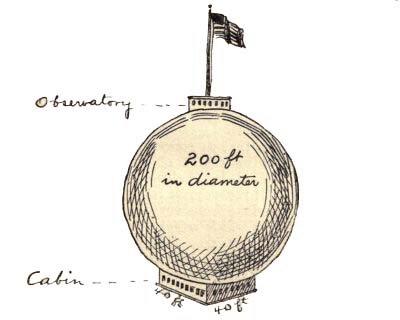 Observatory
200 ft
in diameter
Cabin
40 ft
40 ft